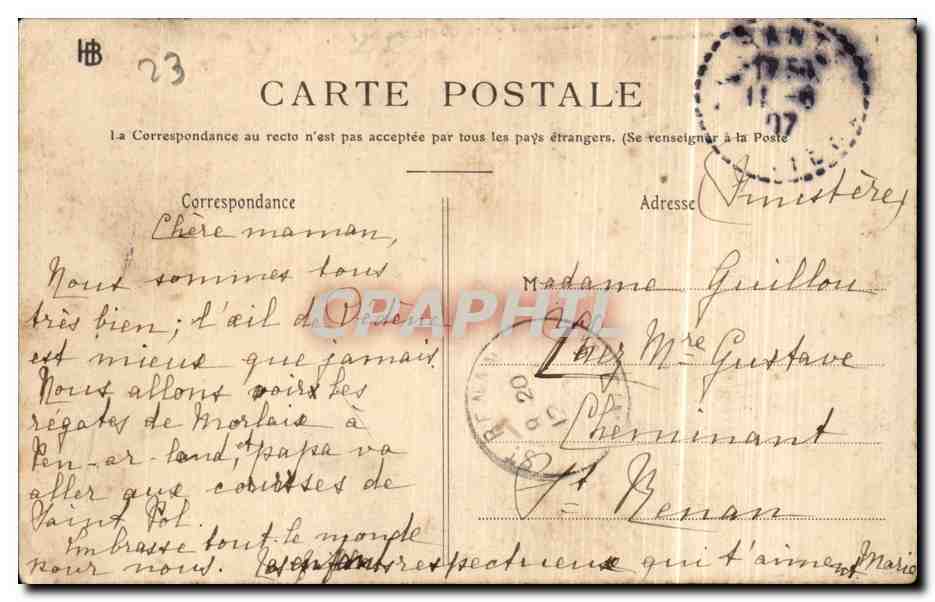 HB
23
CARTE POSTALE
La Correspondance au recto n'est pas acceptée par tous les pays étrangers. (Se renseigner à la Poste
Correspondance
Chère maman,
Nous sommes tous
très bien; l'œil de Dédène
est mieux que jamais.
Nous allons voir les
régates de Morlaix à
Pen-ar-land, et papa va
aller aux courses de
Saint Pol.
Embrasse tout le monde
pour nous. Les enfants respectueux qui t'aiment. Marie
Adresse
(Finistère)
Madame Guillou
Chez Mre Gustave
Cheminant
St Renan
11 -8
07
ST RENAN
20
CPAPHIL